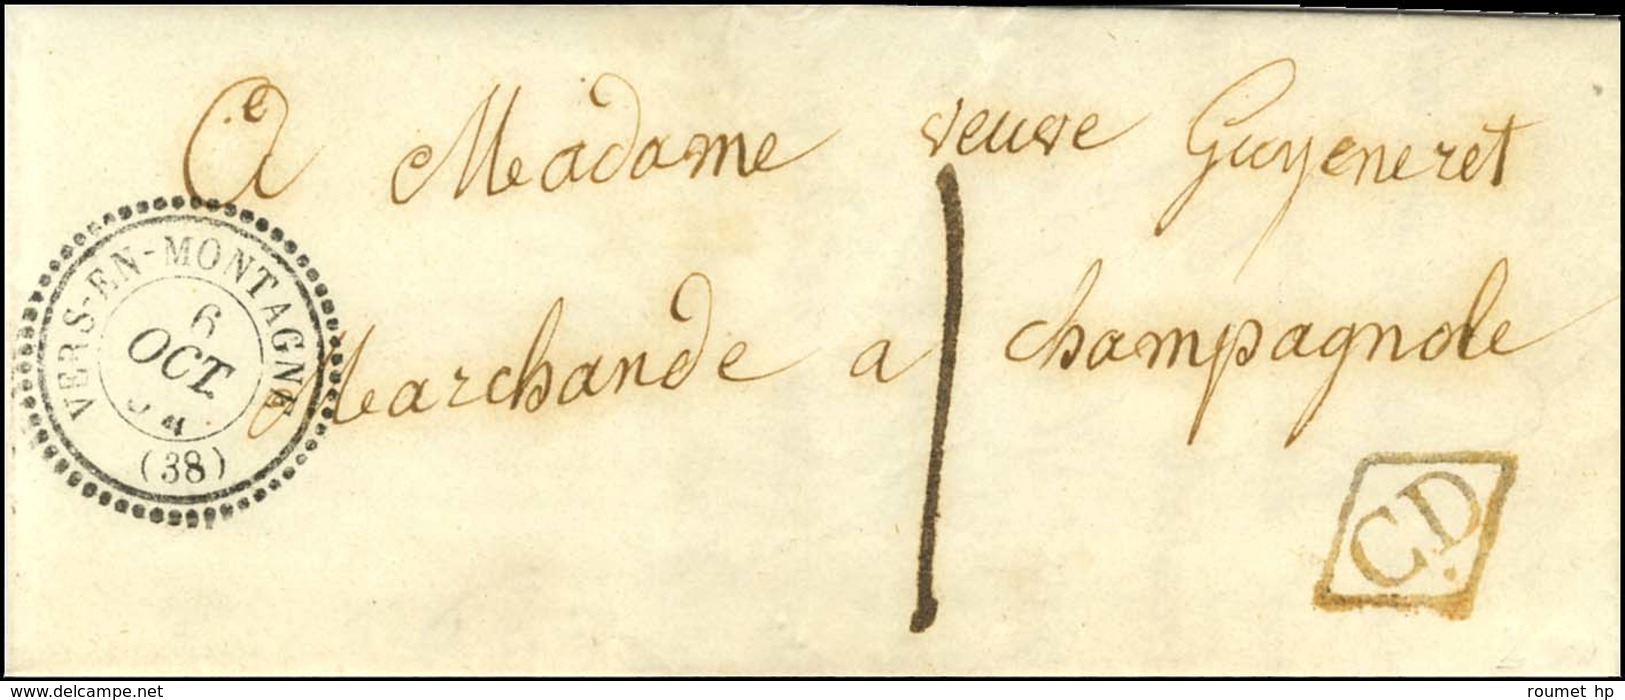 A Madame veuve Guyeneret
Marchande a champagnole
1
VERS-EN-MONTAGNE
6
OCT.
(38)
CD.
www.delcampe.net
roumet hp